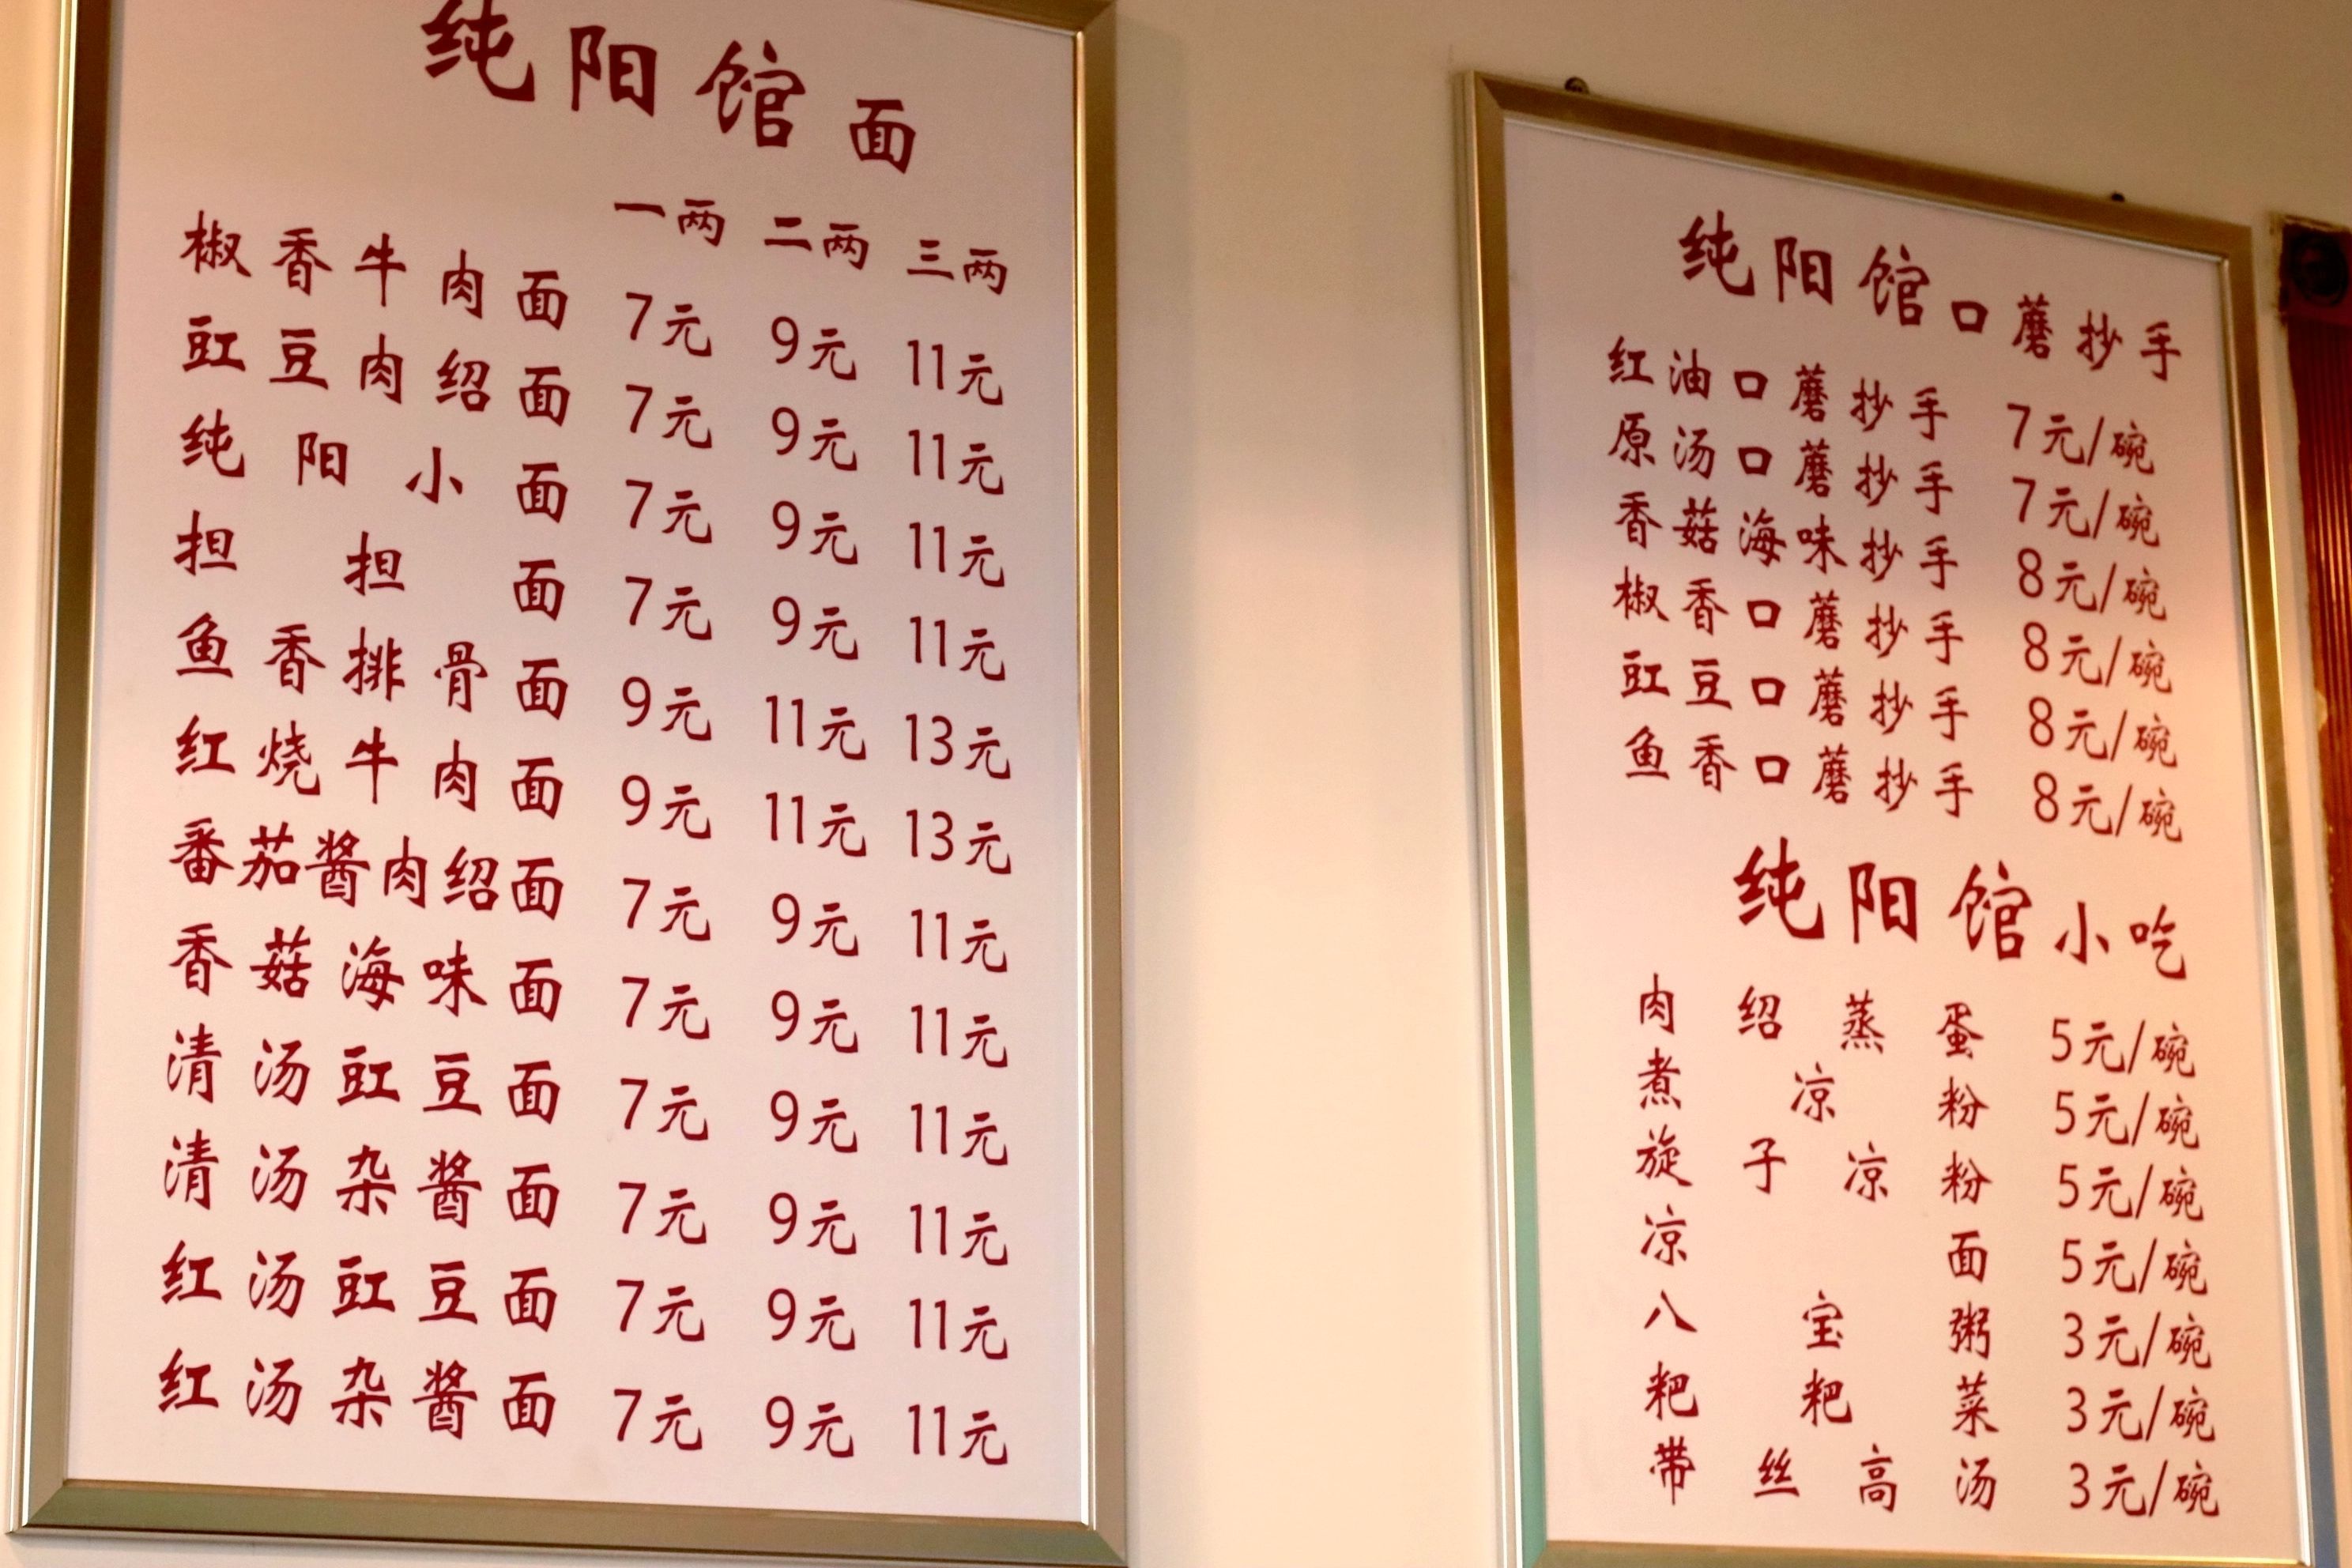 纯阳馆面
一两 二两 三两
椒香牛肉面 7元 9元 11元
豇豆肉绍面 7元 9元 11元
纯阳小面 7元 9元 11元
担担面 7元 9元 11元
鱼香排骨面 9元 11元 13元
红烧牛肉面 9元 11元 13元
番茄酱肉绍面 7元 9元 11元
香菇海味面 7元 9元 11元
清汤豇豆面 7元 9元 11元
清汤杂酱面 7元 9元 11元
红汤豇豆面 7元 9元 11元
红汤杂酱面 7元 9元 11元
纯阳馆口蘑抄手
红油口蘑抄手 7元/碗
原汤口蘑抄手 7元/碗
香菇海味抄手 8元/碗
椒香口蘑抄手 8元/碗
豇豆口蘑抄手 8元/碗
鱼香口蘑抄手 8元/碗
纯阳馆小吃
肉绍蒸蛋 5元/碗
煮凉粉 5元/碗
旋子凉粉 5元/碗
凉面 5元/碗
八宝粥 3元/碗
粑粑菜 3元/碗
带丝高汤 3元/碗